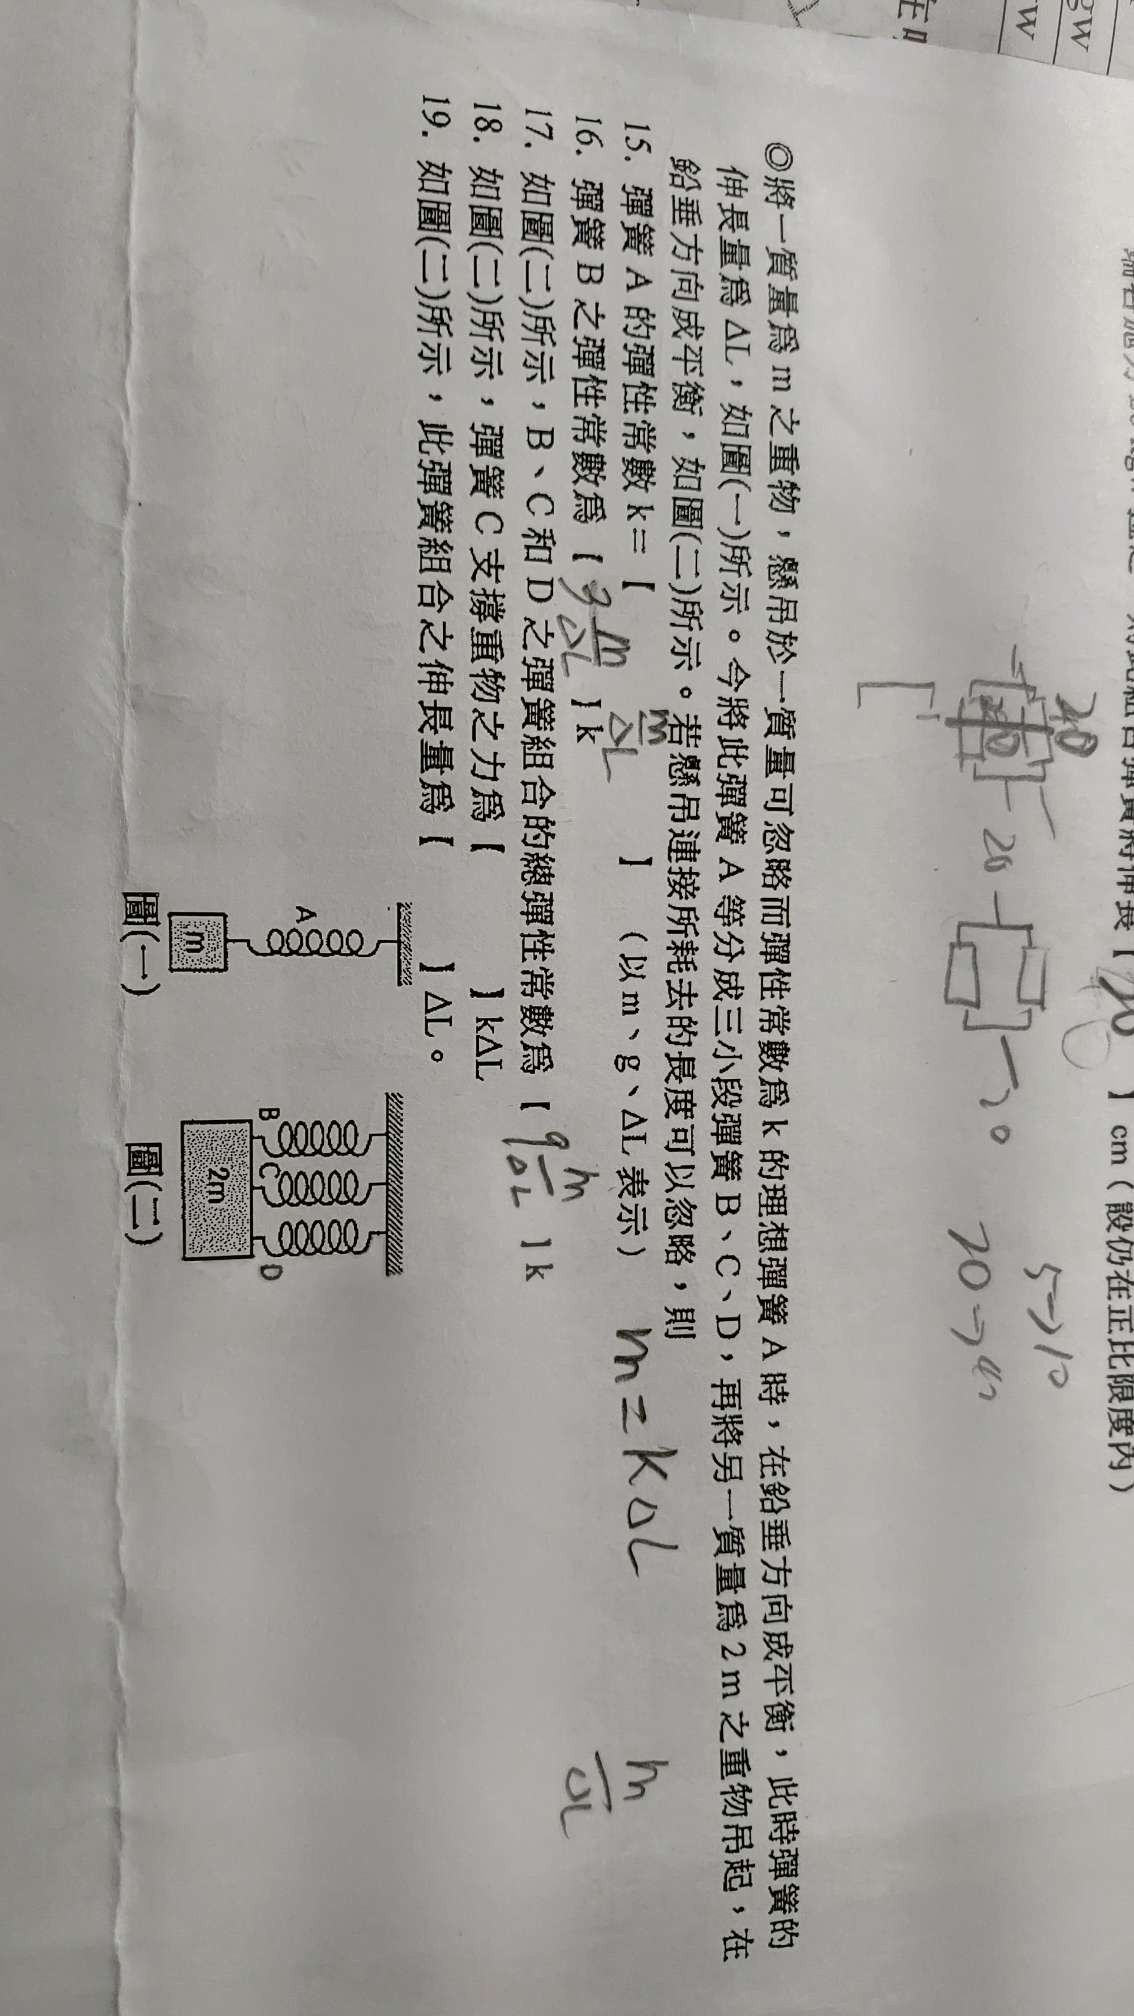 gw
w
】cm（設仍在正比限度內）
40
20
20
5→10
20→40
◎將一質量為 m 之重物，懸吊於一質量可忽略而彈性常數為 k 的理想彈簧 A 時，在鉛垂方向成平衡，此時彈簧的
伸長量為 ΔL，如圖(一)所示。今將此彈簧 A 等分成三小段彈簧 B、C、D，再將另一質量為 2 m 之重物吊起，在
鉛垂方向成平衡，如圖(二)所示。若懸吊連接所耗去的長度可以忽略，則
15. 彈簧 A 的彈性常數 k＝【 m/ΔL 】（以 m、g、ΔL 表示） m=kΔL
m/ΔL
16. 彈簧 B 之彈性常數為【 3 m/ΔL 】k
17. 如圖(二)所示，B、C 和 D 之彈簧組合的總彈性常數為【 9 m/ΔL 】k
18. 如圖(二)所示，彈簧 C 支撐重物之力為【 】kΔL
19. 如圖(二)所示，此彈簧組合之伸長量為【 】ΔL。
A
m
圖(一)
B
C
D
2m
圖(二)